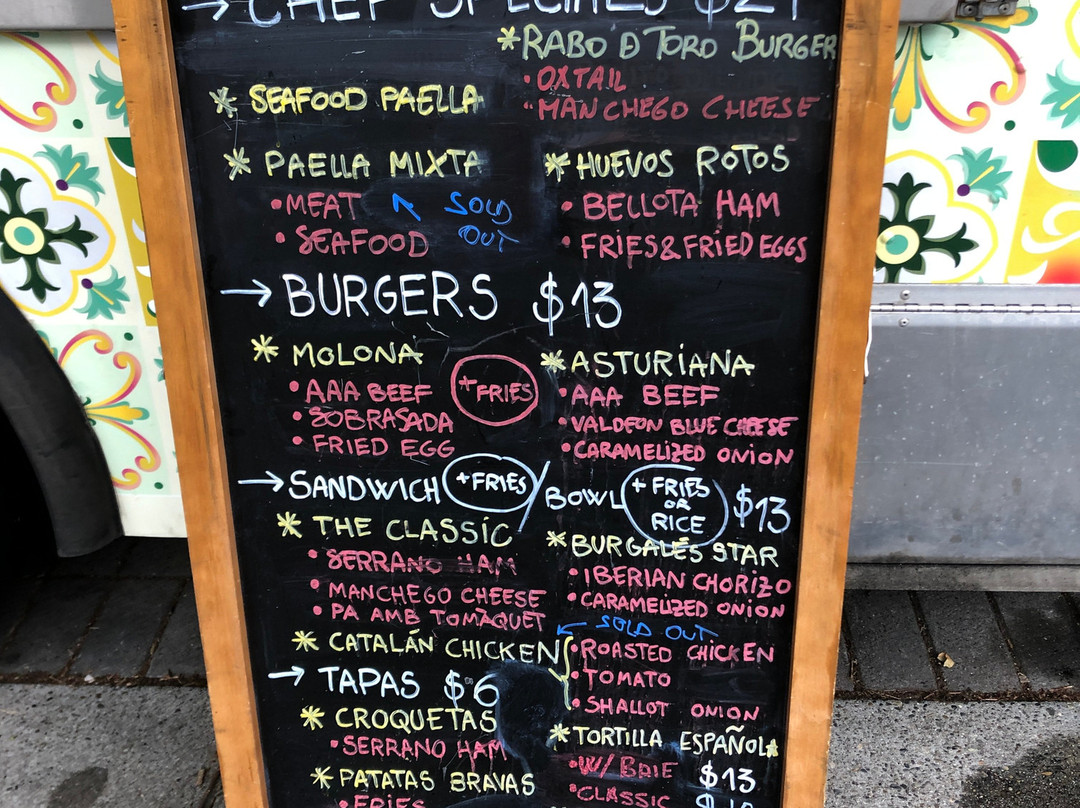 → CHEF SPECIALS $21
* RABO D TORO BURGER
• OXTAIL
• MANCHEGO CHEESE
* SEAFOOD PAELLA
* PAELLA MIXTA
• MEAT
• SEAFOOD
SOLD
OUT
* HUEVOS ROTOS
• BELLOTA HAM
• FRIES & FRIED EGGS
→ BURGERS $13
* MOLONA
• AAA BEEF
• SOBRASADA
• FRIED EGG
+ FRIES
* ASTURiANA
• AAA BEEF
• VALDEON BLUE CHEESE
• CARAMELiZED ONiON
→ SANDWICH + FRIES / BOWL + FRIES OR RICE $13
* THE CLASSiC
• SERRANO HAM
• MANCHEGO CHEESE
• PA AMB TOMÀQUET
* BURGALÉS STAR
• IBERIAN CHORIZO
• CARAMELIZED ONION
← SOLD OUT
* CATALÁN CHICKEN
• ROASTED CHICKEN
• TOMATO
• SHALLOT ONION
→ TAPAS $6
* CROQUETAS
• SERRANO HAM
* PATATAS BRAVAS
• FRIES
* TORTILLA ESPAÑOLA
• W/ BRIE $13
• CLASSIC